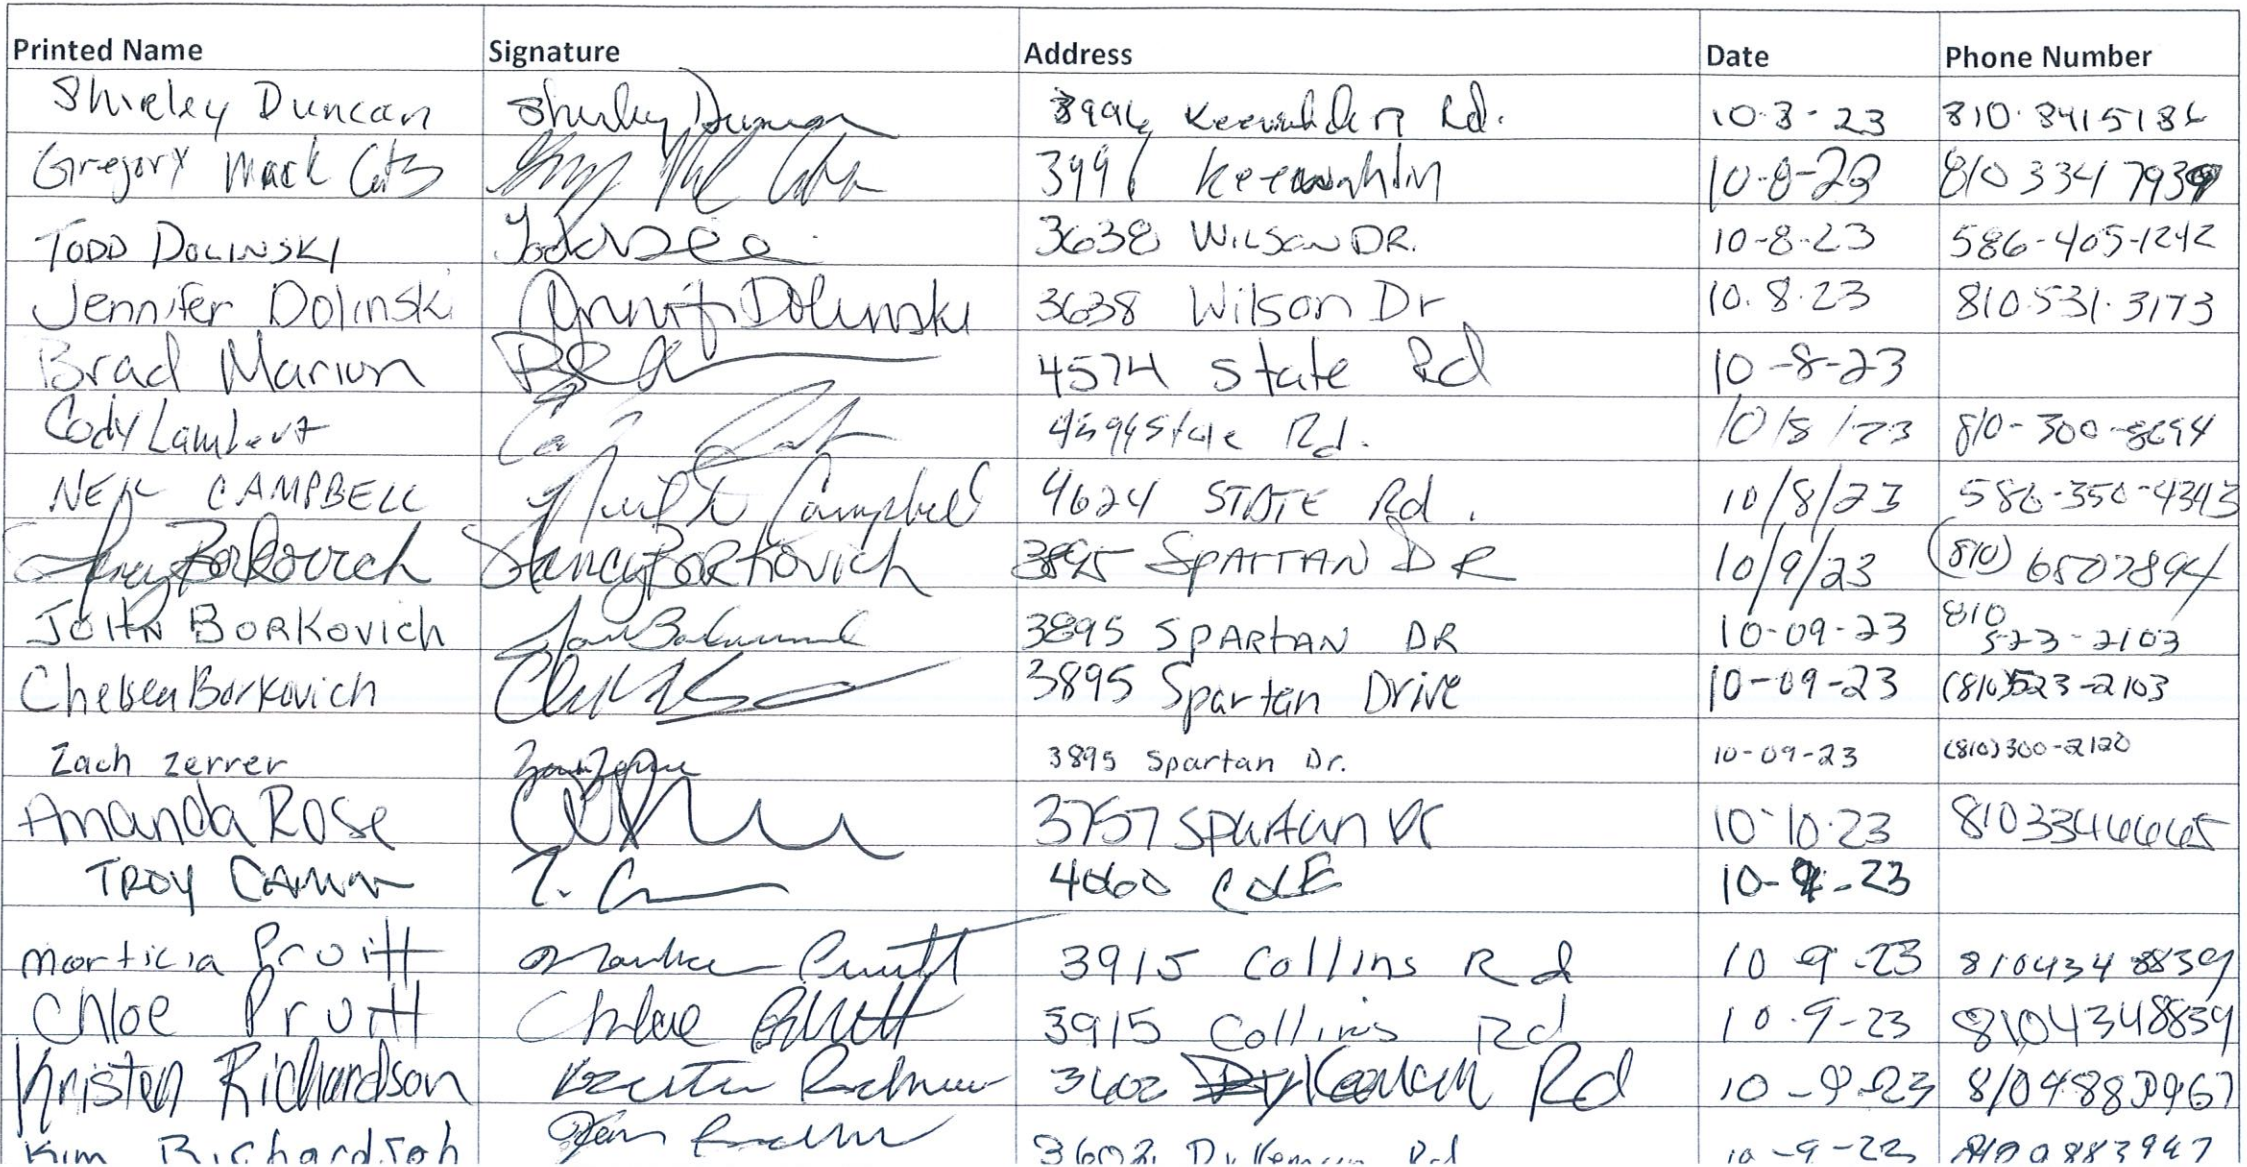 Printed Name Signature Address Date Phone Number
Shirley Duncan Shirley Duncan 3996 Rd. 10-8-23 810-8415186
Gregory Mack 3996 10-8-23 810 334 7939
TODD DOLINSKI 3638 WILSON DR. 10-8-23 586-405-1242
Jennifer Dolinski Jennif Dolinski 3638 Wilson Dr 10.8.23 810.531.3173
Brad Marion 4574 state Rd 10-8-23
Cody Lambert 4594 State Rd. 10/8/23 810-300-8694
NEIL CAMPBELL Neil Campbell 4624 STATE Rd. 10/8/23 586-350-4343
Borkovich Nancy Borkovich 3895 SPARTAN DR 10/9/23 (810) 6507894
JOHN BORKOVICH 3895 SPARTAN DR 10-09-23 810
523-2103
Chelsea Borkovich 3895 Spartan Drive 10-09-23 (810)523-2103
Zach Zerrer 3895 Spartan Dr. 10-09-23 (810)300-2120
Amanda Rose 3757 Spartan Dr 10-10-23 8103346665
TROY 4060 COLE 10-9-23
Morticia Pruitt Pruitt 3915 Collins Rd 10-9-23 8104348839
Chloe Pruitt Chloe Pruitt 3915 Collins Rd 10-9-23 8104348839
Kristen Richardson 3602 Rd 10-9-23 8104883967
Kim Richardson 3602 Rd 10-9-23